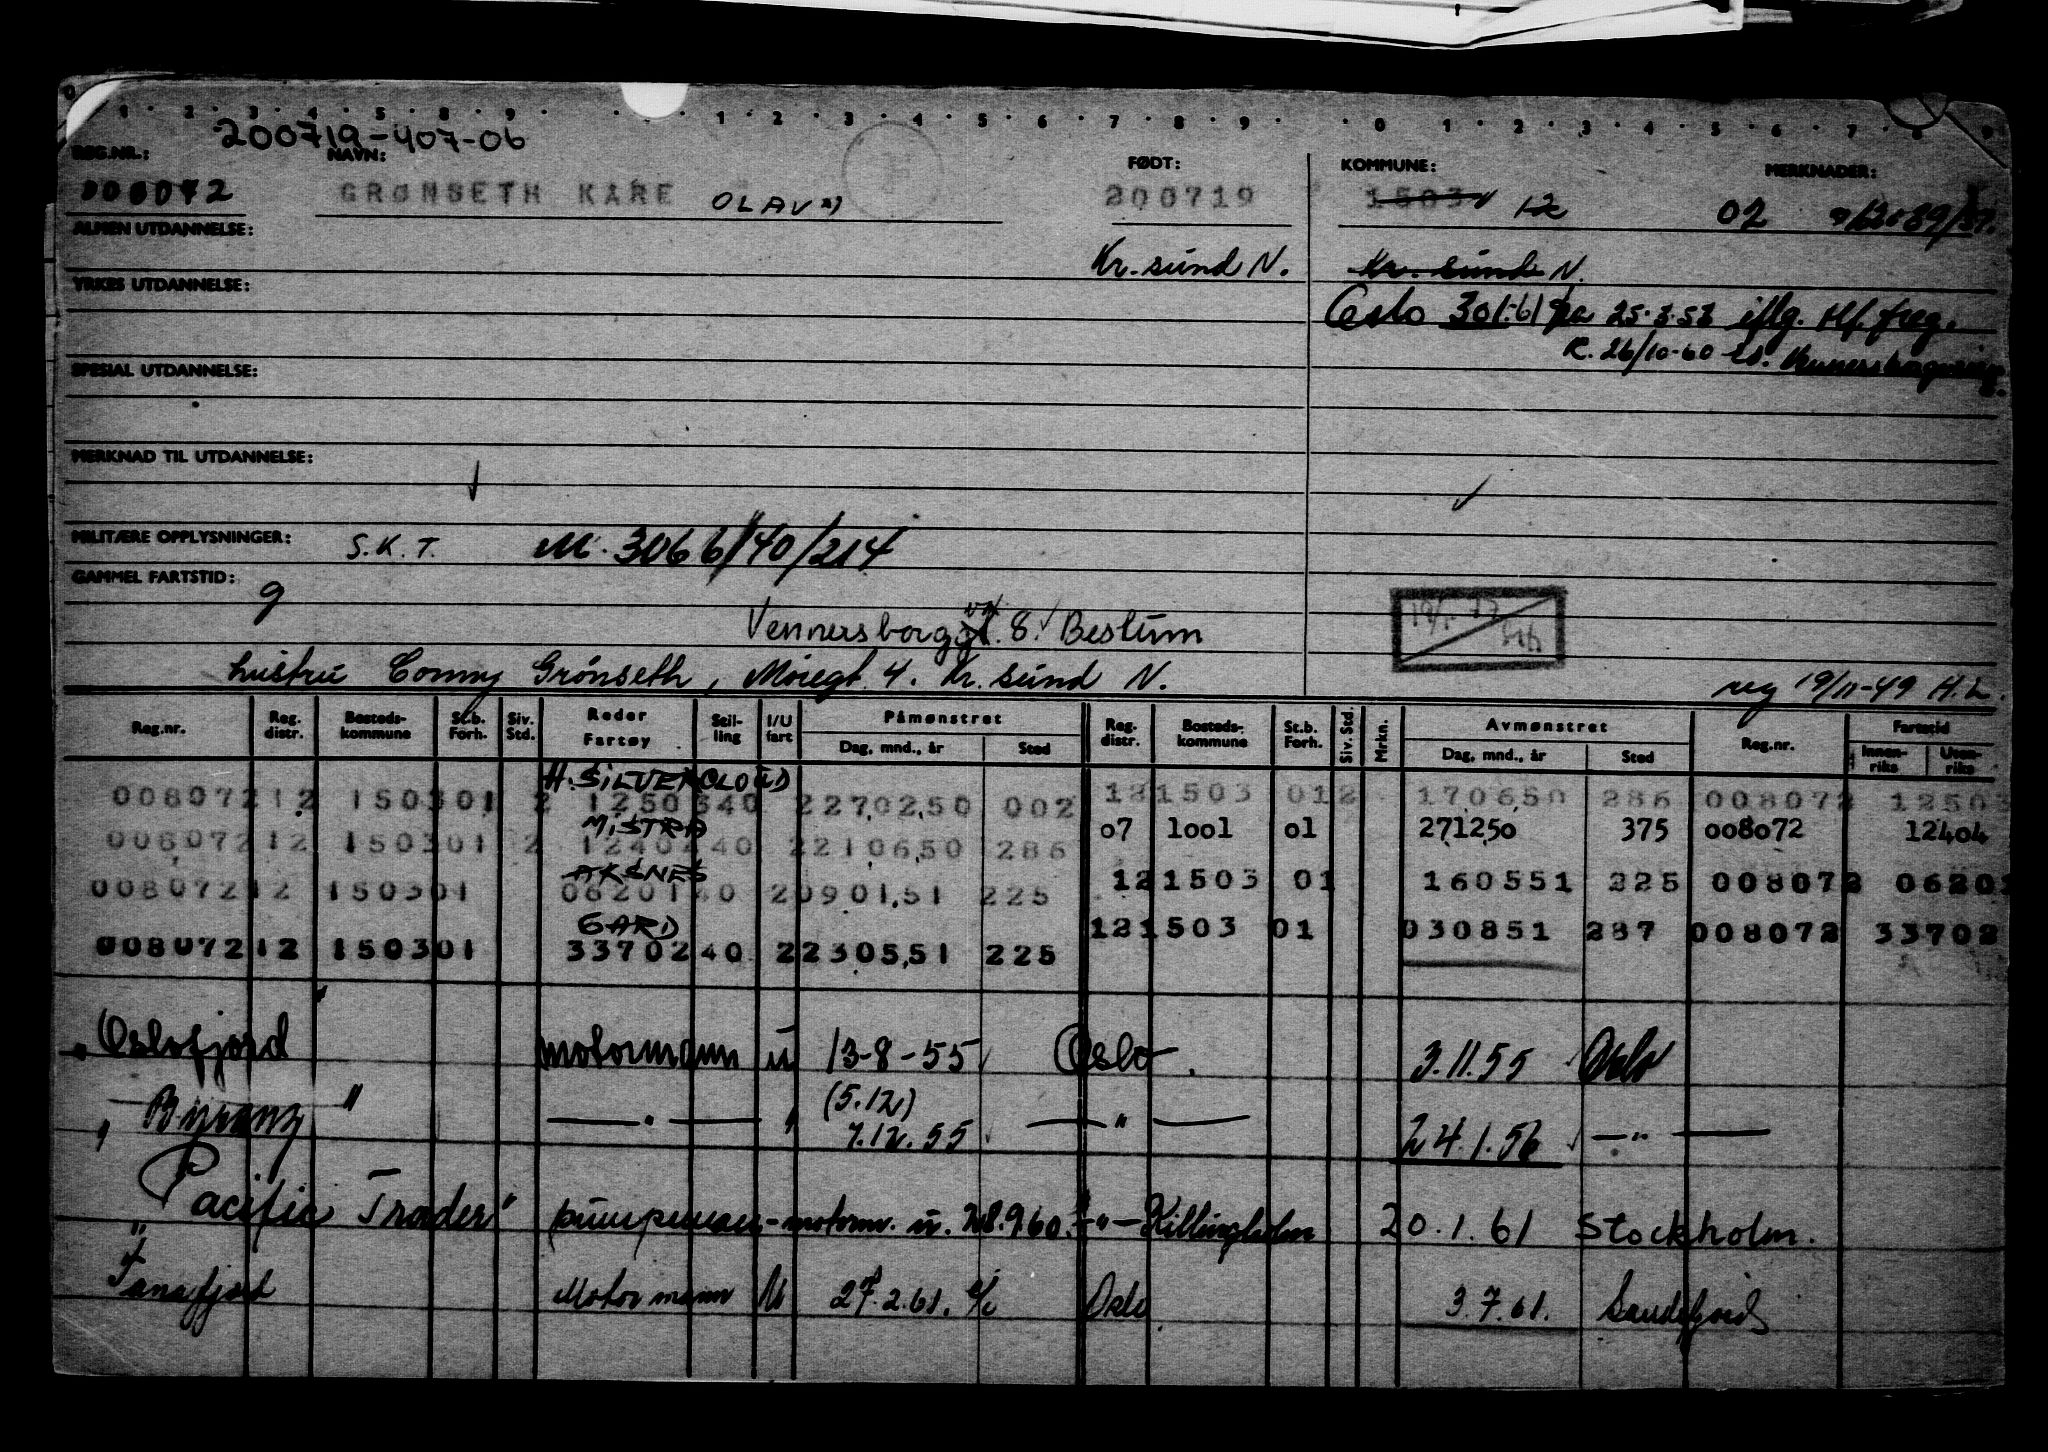 0 1 2 3 4 5 8 9 1 2 3 4 5 6 7 8 9 0 1 2 3 4 5 6 7 8 9
200719-407-06
REG.NR.: NAVN: FØDT: KOMMUNE: MERKNADER:
008072 GRØNSETH KARE OLAV 200719 1503 12 02
ALMEN UTDANNELSE:
Kr. sund N. Kr. sund N.
YRKES UTDANNELSE:
Oslo 301-61 fra 25.3.53 iflg. Hf. freg.
R. 26/10-60
SPESIAL UTDANNELSE:
MERKNAD TIL UTDANNELSE:
MILITÆRE OPPLYSNINGER: S.K.T. M. 3066/40/214
GAMMEL FARTSTID: g
Vennersborg vn. 8. Bestum
hustru Conny Grønseth, Moiegt. 4. Kr. sund N.
reg 19/11-49 H.L.
Reg.nr. Reg. distr. Bosteds-kommune St.b. Forh. Siv. Std. Reder Fartøy Stil-ling I/U fart Påmønstret Dag, mnd., år Sted Reg. distr. Bosteds-kommune St.b. Forh. Siv. Std. Mrkn. Avmønstret Dag, mnd., år Sted Reg.nr. Fartstid Innen-riks Uten-riks
H. SILVERCLOUD
008072 12 1503 01 2 12503 40 2 270250 002 12 1503 01 2 170650 286 008072 12503
MISTRA
008072 12 1503 01 2 12404 40 2 210650 286 07 1001 01 271250 375 008072 12404
AKSNES
008072 12 1503 01 06201 40 2 090151 225 12 1503 01 160551 225 008072 06201
GARD
008072 12 1503 01 33702 40 2 230551 225 12 1503 01 030851 287 008072 33702
"Oslofjord" motormann u 13-8-55 Oslo 3.11.55 Oslo
(5.12)
"Byranz" — " — " 7.12.55 — " — 24.1.56 — " —
"Pacific Trader" pumpeman-motorm. u. 28.9.60. - " - Killingholm 20.1.61 Stockholm.
"Tanafjord Motormann U 27.2.61. Oslo 3.7.61. Sandefjord